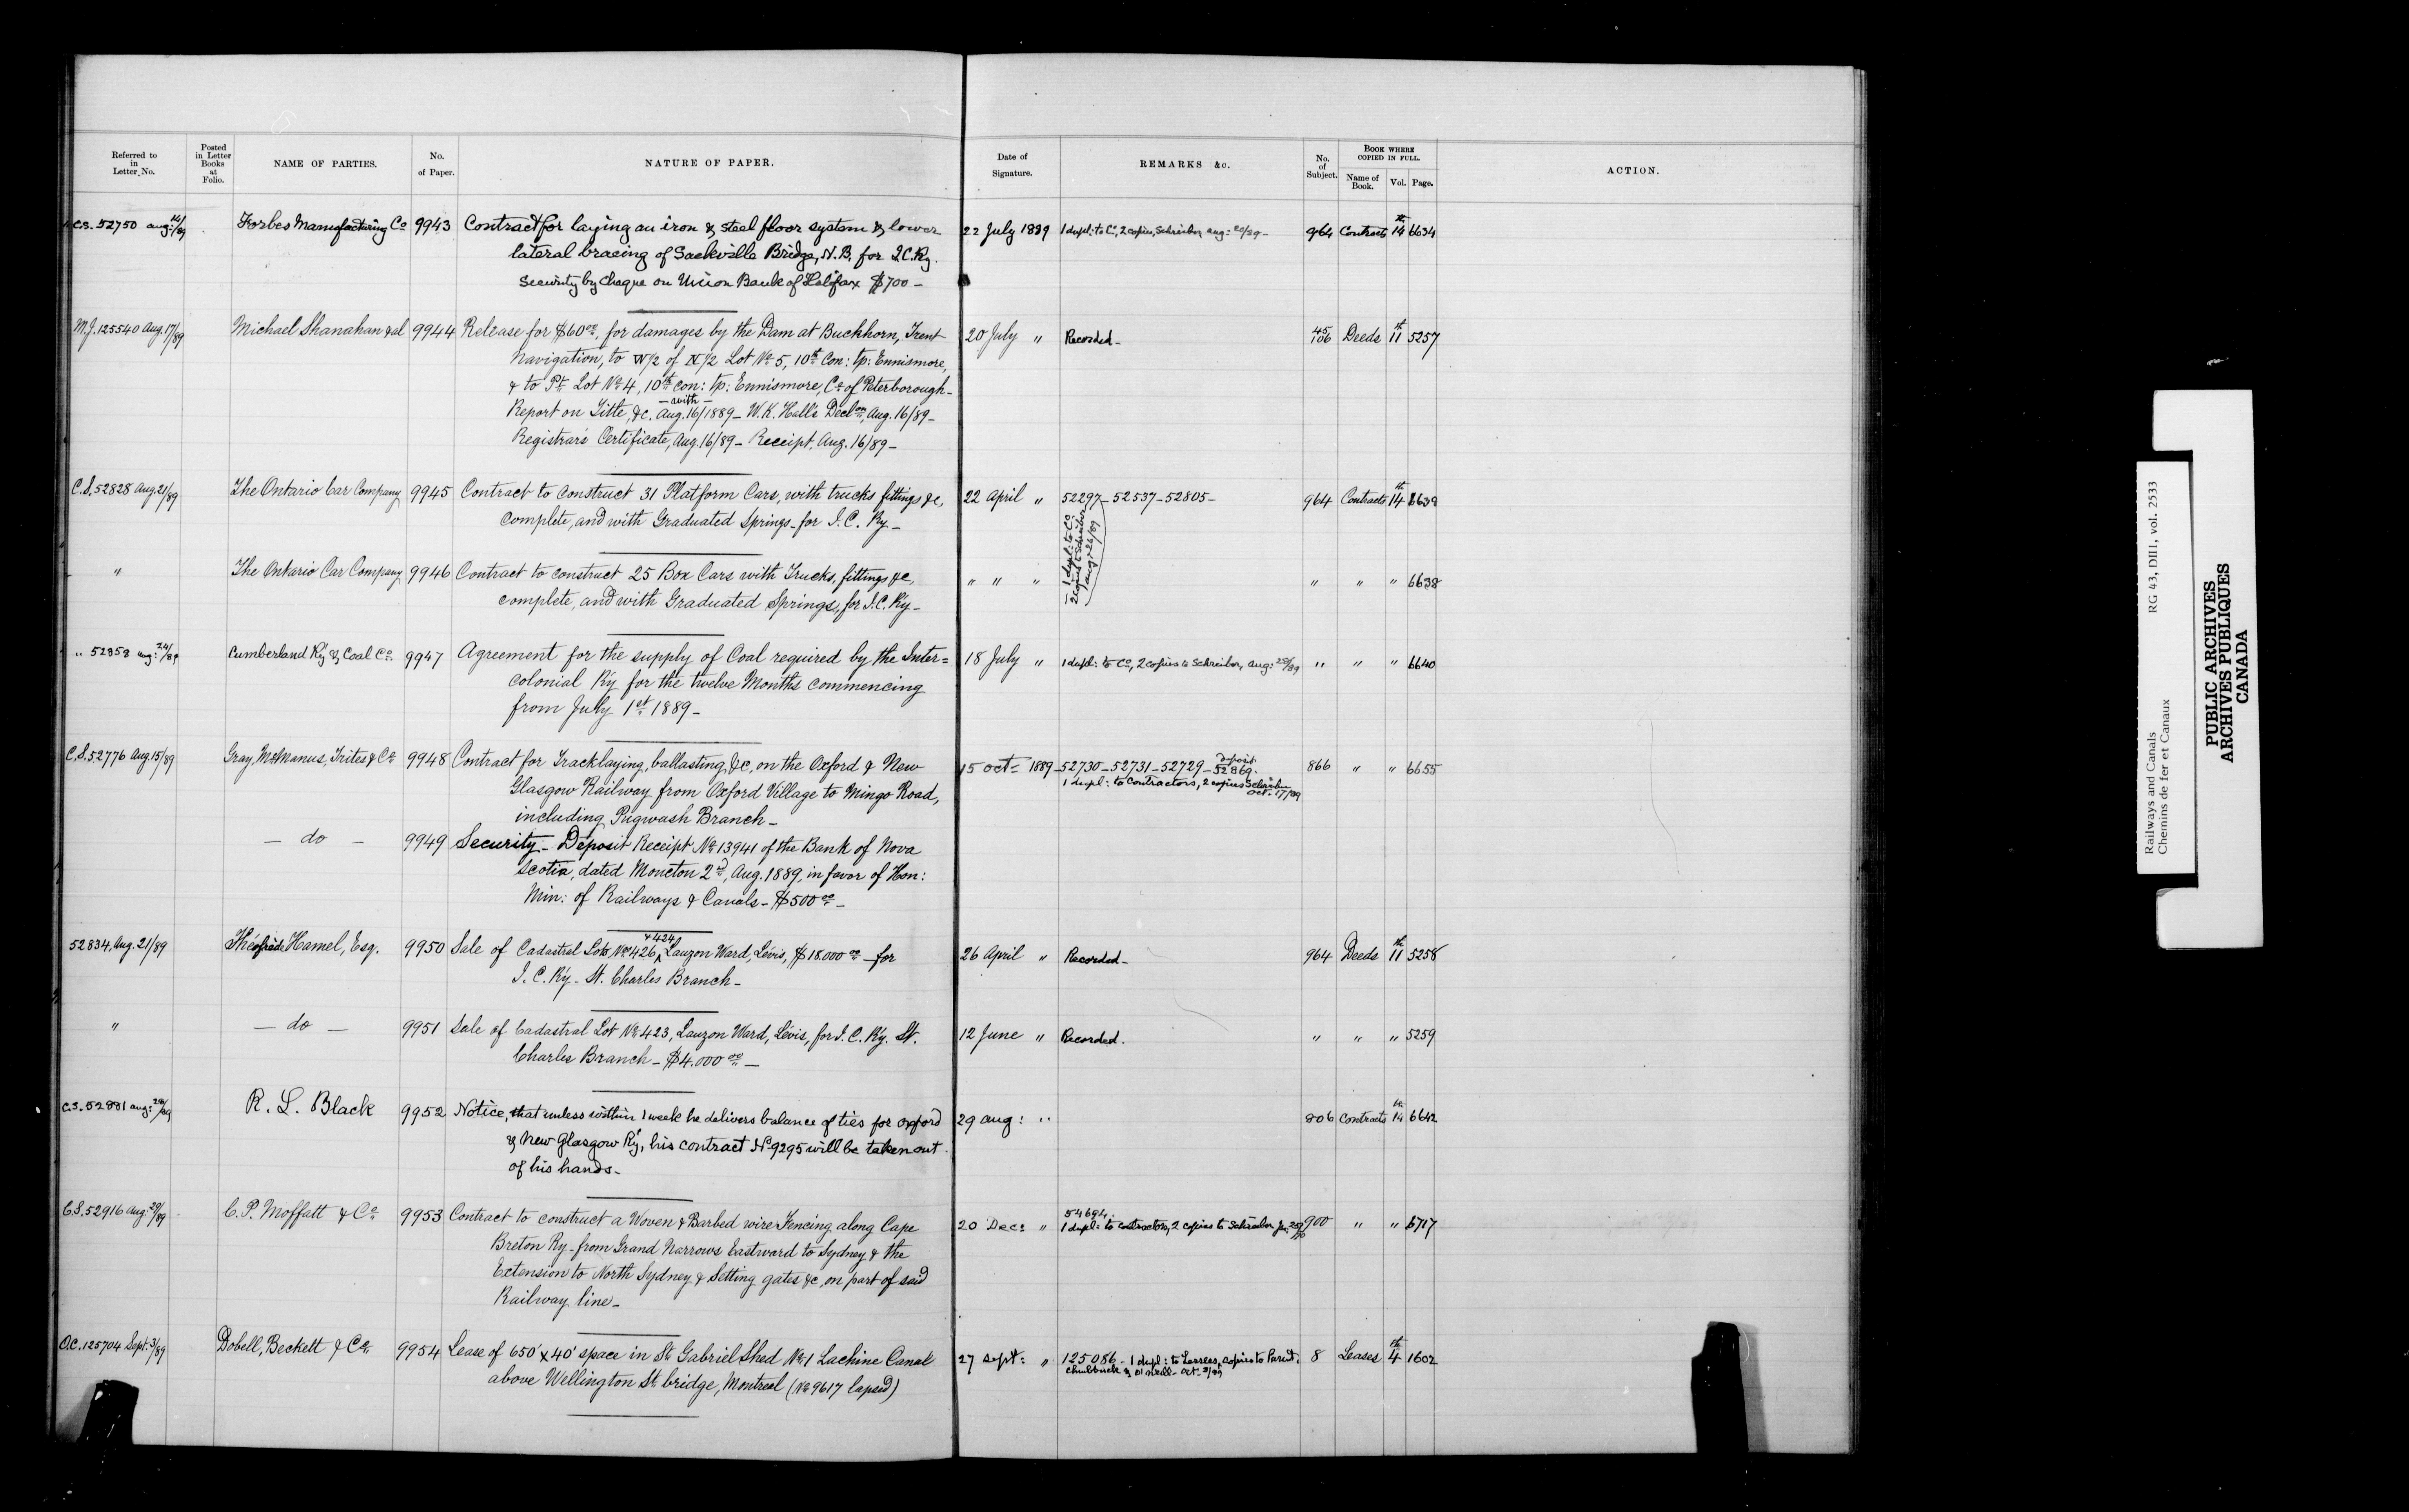 Referred to in Letter No. Posted in Letter Books at Folio. NAME OF PARTIES. No. of Paper. NATURE OF PAPER. Date of Signature. REMARKS &c. No. of Subject. BOOK WHERE COPIED IN FULL. Name of Book. Vol. Page. ACTION.
C.S. 52750 Aug: /89 Forbes Manufacturing Co 9943 Contract for laying an iron & steel floor system & lower 22 July 1889 1 dupl: to Co, 2 copies, Schreiber Aug: 20/89 - 964 Contracts 14th 6634
lateral bracing of Sackville Bridge, N.B. for I.C.Ry.
Security by cheque on Union Bank of Halifax $700 -
M.J. 125540 Aug. 17/89 Michael Shanahan & al 9944 Release for $60 00, for damages by the Dam at Buckhorn, Trent 20 July " Recorded - Deeds 11th 5257
Navigation, to W 1/2 of N 1/2 Lot No 5, 10th Con: tp: Ennismore,
& to Pt Lot No 4, 10th con: tp: Ennismore, Co of Peterborough -
- with -
Report on Title, &c. Aug. 16/1889 - W.K. Hall's Declon, Aug. 16/89 -
Registrar's Certificate, Aug. 16/89 - Receipt, Aug. 16/89 -
C.S. 52828 Aug. 21/89 The Ontario Car Company 9945 Contract to construct 31 Platform Cars, with trucks fittings &c, 22 April " 52297 - 52537 - 52805 - 964 Contracts 14th 6639
complete, and with Graduated Springs - for I.C. Ry. -
- 1 dupl: to Co
2 copies to Schreiber
Aug: 26/89
" The Ontario Car Company 9946 Contract to construct 25 Box Cars with Trucks, fittings &c, " " " " " " 6638
complete, and with Graduated Springs, for I.C. Ry -
" 52858 Aug: 24/89 Cumberland Ry & Coal Co. 9947 Agreement for the supply of Coal required by the Inter= 18 July " 1 dupl: to Co, 2 copies to Schreiber, Aug: 28/89 " " " 6640
colonial Ry for the twelve Months commencing
from July 1st 1889 -
C.S. 52776 Aug. 15/89 Gray, McManus, Trites & Co 9948 Contract for Tracklaying, ballasting, &c, on the Oxford & New 15 Oct 1889 - 52730 - 52731 - 52729 - Deposit 52869. 866 " " 6655
1 dupl: to Contractors, 2 copies Schreiber Oct. 17/89
Glasgow Railway from Oxford Village to Mingo Road,
including Pugwash Branch -
- do - 9949 Security - Deposit Receipt No 13941 of the Bank of Nova
Scotia, dated Moncton 2nd, Aug. 1889, in favor of Hon:
Min: of Railways & Canals - $500 00 -
52834 Aug. 21/89 Hamel, Esq. 9950 Sale of Cadastral Lots, Nos 426 & 424 Lauzon Ward, Lévis, $18.000 00 - for 26 April " Recorded - 964 Deeds 11th 5258
I.C. Ry - St. Charles Branch -
" - do - 9951 Sale of Cadastral Lot No 423, Lauzon Ward, Lévis, for I.C. Ry. St. 12 June " Recorded. " " " 5259
Charles Branch - $4.000 00 -
C.S. 52881 Aug: /89 R. L. Black 9952 Notice, that unless within 1 week he delivers balance of ties for Oxford 29 Aug: " 806 Contracts 14th 6642
& New Glasgow Ry, his contract No 9295 will be taken out
of his hands -
C.S. 52916 Aug: 29/89 C. P. Moffatt & Co 9953 Contract to construct a Woven & Barbed wire Fencing along Cape 20 Dec: " 54694. 900 " " 6717
1 dupl: to contractors, 2 copies to Schreiber
Breton Ry - from Grand Narrows Eastward to Sydney & the
Extension to North Sydney & Setting gates &c, on part of said
Railway line -
O.C. 125704 Sept. 3/89 Dobell, Beckett & Co. 9954 Lease of 650' x 40' space in St Gabriel Shed No 1 Lachine Canal 27 Sept: " 125086 - 1 dupl: to Lessees, copies to Parent, 8 Leases 4th 1602
Chubbuck & O'Neill - Oct. 3/89
above Wellington St. bridge, Montreal (No 9617 lapsed)
Railways and Canals RG 43, DII1, vol. 2533
Chemins de fer et Canaux
PUBLIC ARCHIVES
ARCHIVES PUBLIQUES
CANADA